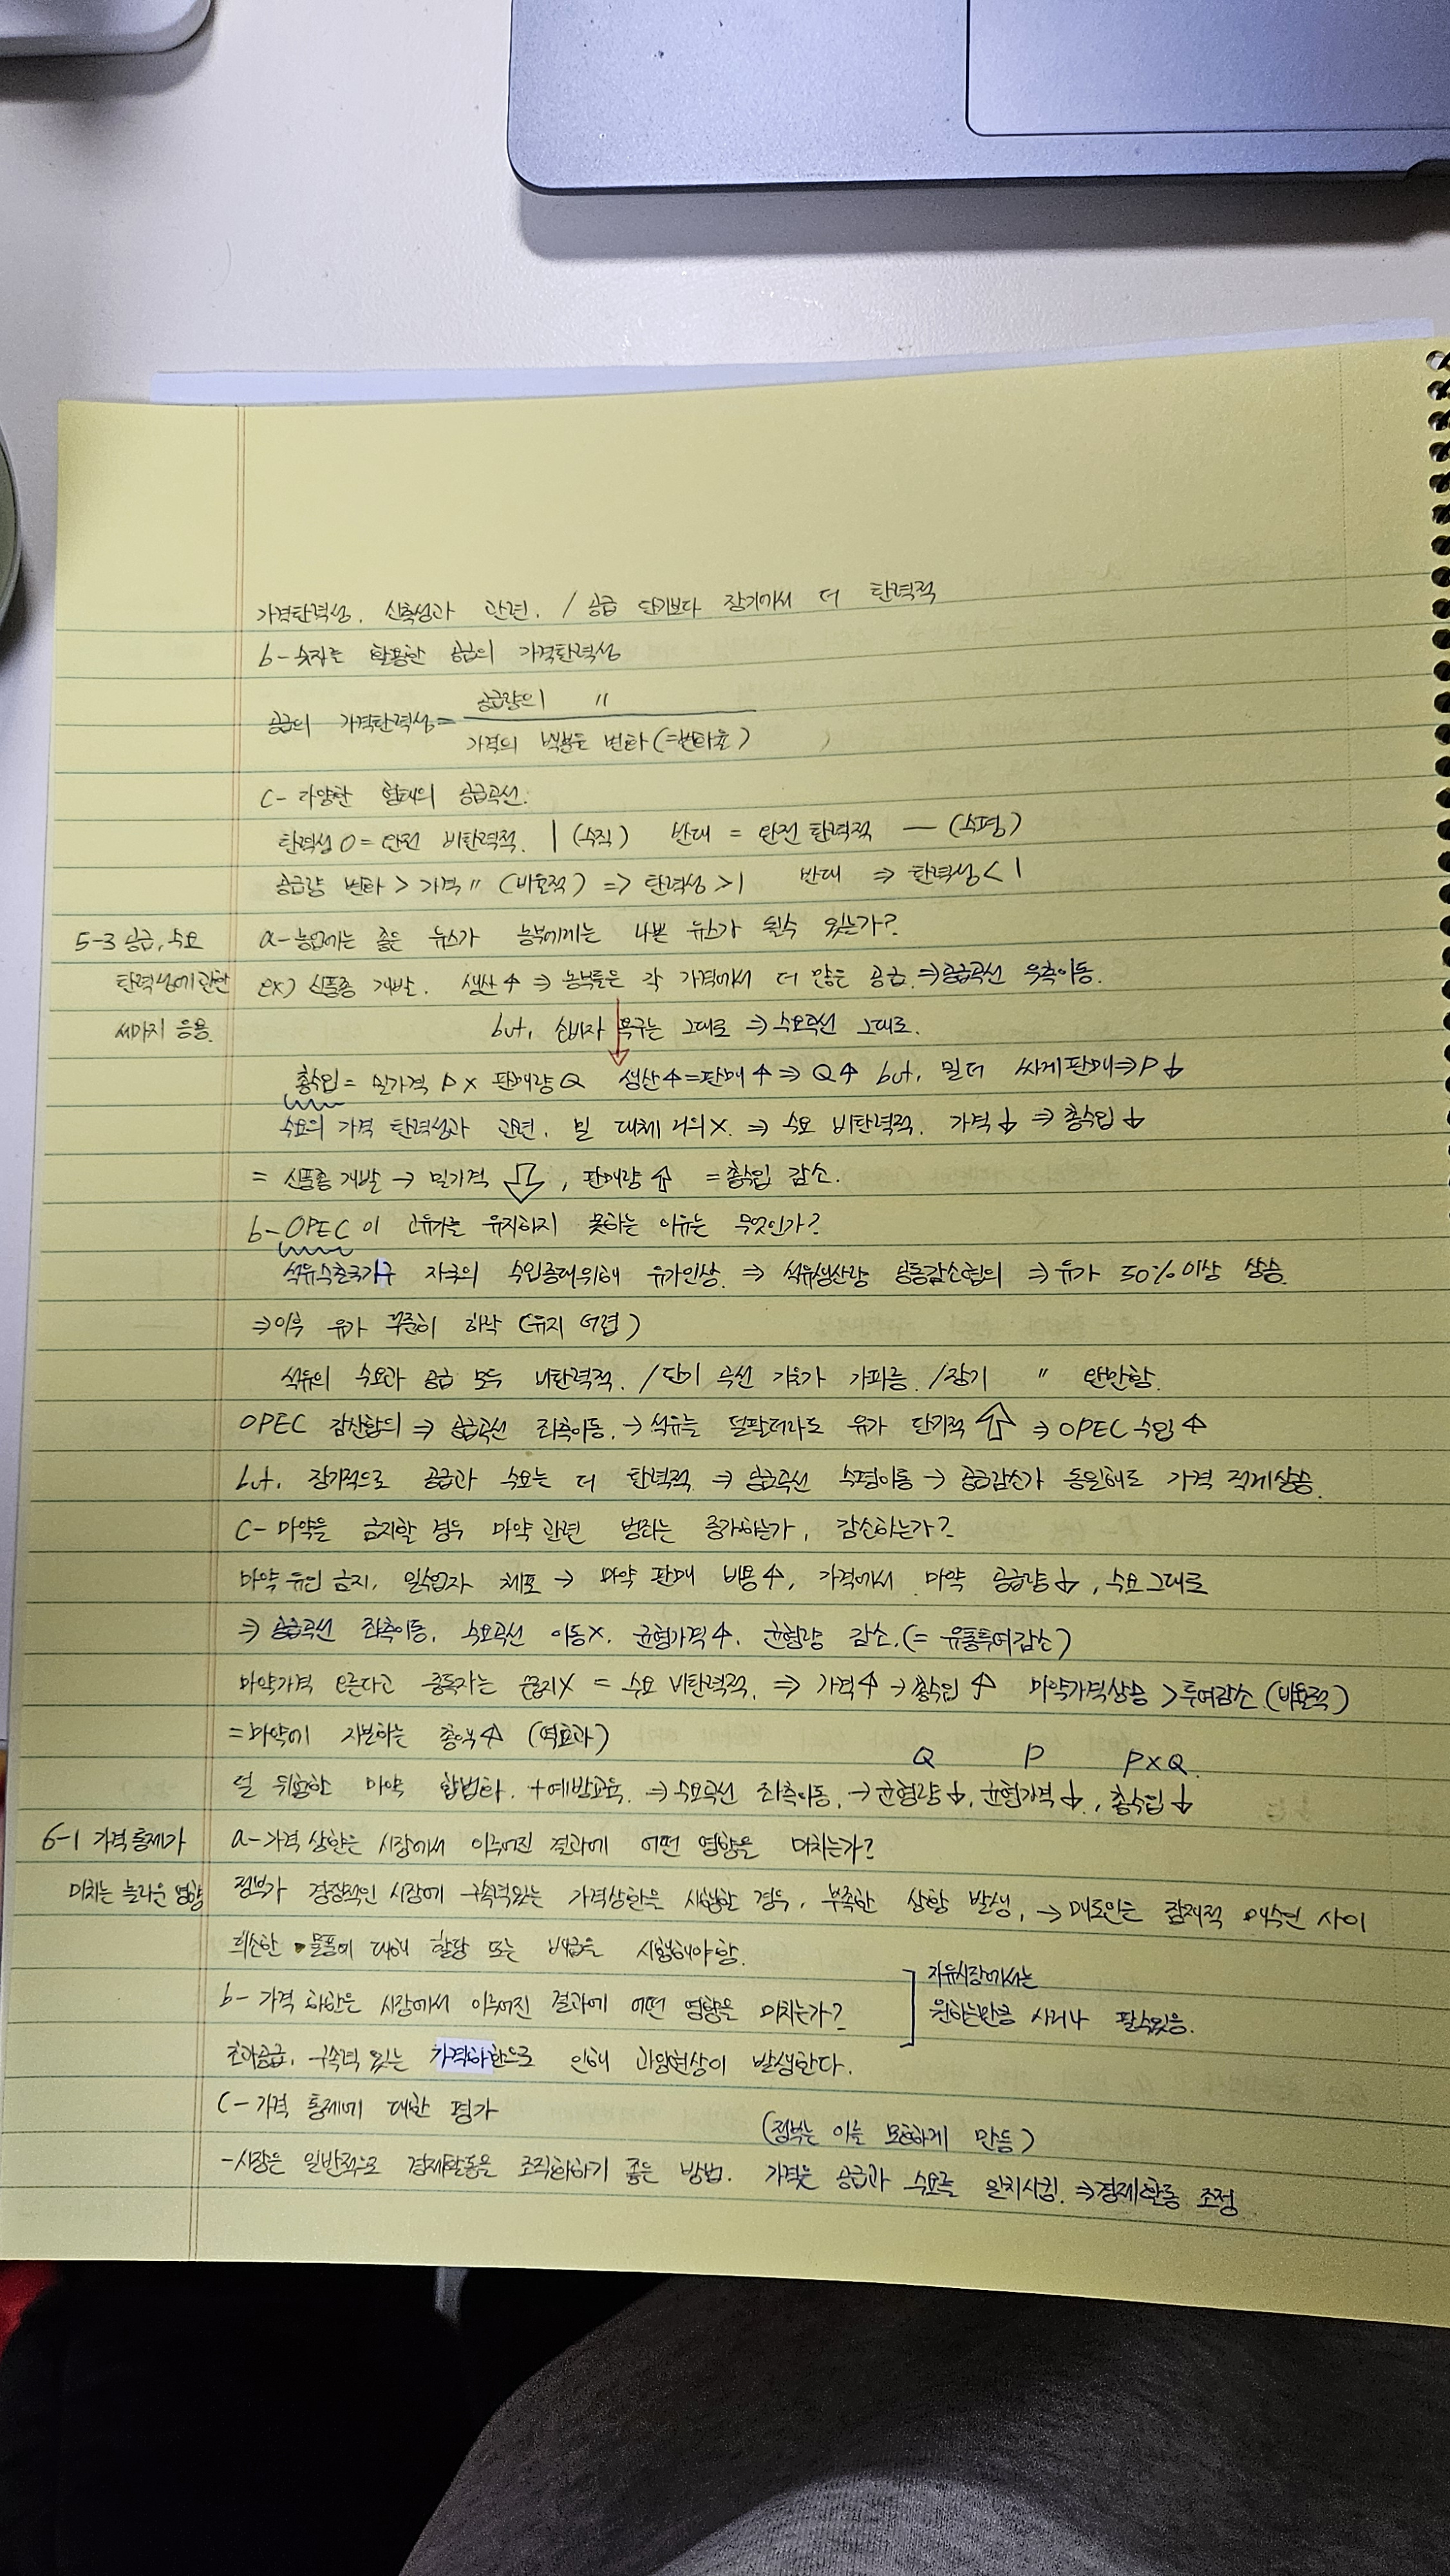 가격탄력성. 신축성과 관련. / 공급 단기보다 장기에서 더 탄력적
b-숫자를 활용한 공급의 가격탄력성
공급의 가격탄력성= 공급량의 〃
가격의 백분율 변화(=변화율)
C- 다양한 형태의 공급곡선.
탄력성 0 = 완전 비탄력적. | (수직) 반대 = 완전 탄력적 — (수평)
공급량 변화 > 가격 〃 (비율적) => 탄력성 >1 반대 ⇒ 탄력성 < 1
5-3 공급, 수요
a-농업에는 좋은 뉴스가 농부에게는 나쁜 뉴스가 될수 있는가?
탄력성에 관한
ex) 신품종 개발. 생산↑ ⇒ 농부들은 각 가격에서 더 많은 공급.⇒공급곡선 우측이동.
세가지 응용.
but, 소비자 욕구는 그대로 ⇒ 수요곡선 그대로.
총수입 = 밀가격 P X 판매량 Q 생산↑=판매↑⇒ Q↑ but, 밀 더 싸게 판매⇒P↓
수요의 가격 탄력성과 관련. 밀 대체 거의X. ⇒ 수요 비탄력적. 가격↓ ⇒ 총수입↓
= 신품종 개발 → 밀가격 ⇩, 판매량 ↑ = 총수입 감소.
b-OPEC이 고유가를 유지하지 못하는 이유는 무엇인가?
석유수출국기구 자국의 수입증대위해 유가인상. ⇒ 석유생산량 공동감소협의 ⇒ 유가 50%이상 상승.
⇒이후 유가 꾸준히 하락 (유지 어렵)
석유의 수요과 공급 모두 비탄력적. /단기 곡선 기울기 가파름. /장기 〃 완만함.
OPEC 감산합의 ⇒ 공급곡선 좌측이동.→석유를 덜팔더라도 유가 단기적 ⇧ ⇒ OPEC 수입↑
but. 장기적으로 공급과 수요는 더 탄력적 ⇒ 공급곡선 수평이동 → 공급감소가 동일해도 가격 적게상승.
C- 마약을 금지할 경우 마약 관련 범죄는 증가하는가, 감소하는가?
마약 유입 금지, 밀수업자 체포 → 마약 판매 비용↑, 가격에서 마약 공급량↓, 수요그대로
⇒ 공급곡선 좌측이동, 수요곡선 이동X. 균형가격↑. 균형량 감소.(= 유통투여감소)
마약가격 오른다고 중독자는 X = 수요 비탄력적. ⇒ 가격↑→총수입 ↑ 마약가격상승 >투여감소 (비율적)
=마약에 지불하는 총액↑ (역효과)
Q P PxQ.
덜 위험한 마약 합법화. +예방교육. ⇒수요곡선 좌측이동.→균형량↓, 균형가격↓, 총수입↓
6-1 가격 통제가
a-가격 상한은 시장에서 이루어진 결과에 어떤 영향을 미치는가?
미치는 놀라운 영향
정부가 경쟁적인 시장에 구속력있는 가격상한을 시행한 경우, 부족한 상황 발생, →매도인은 잠재적 매수인 사이
희소한 물품에 대해 할당 또는 배급을 시행해야함.
자유시장에서는
b- 가격 하한은 시장에서 이루어진 결과에 어떤 영향을 미치는가?
원하는만큼 사거나 팔수있음.
초과공급, 구속력 있는 가격하한으로 인해 과잉현상이 발생한다.
C-가격 통제에 대한 평가
(정부는 이를 못하게 만듬)
-시장은 일반적으로 경제활동을 조직화하기 좋은 방법. 가격은 공급과 수요를 일치시킴. ⇒경제활동 조정